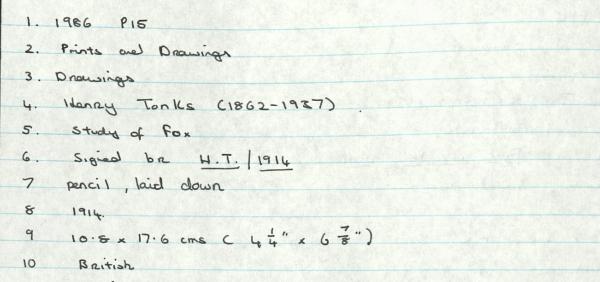 1. 1986 P15
2. Prints and Drawings
3. Drawings
4. Henry Tonks (1862-1937)
5. Study of Fox
6. Signed br H.T. / 1914
7 pencil, laid down
8 1914.
9 10.8 x 17.6 cms ( 4 1/4" x 6 7/8")
10 British